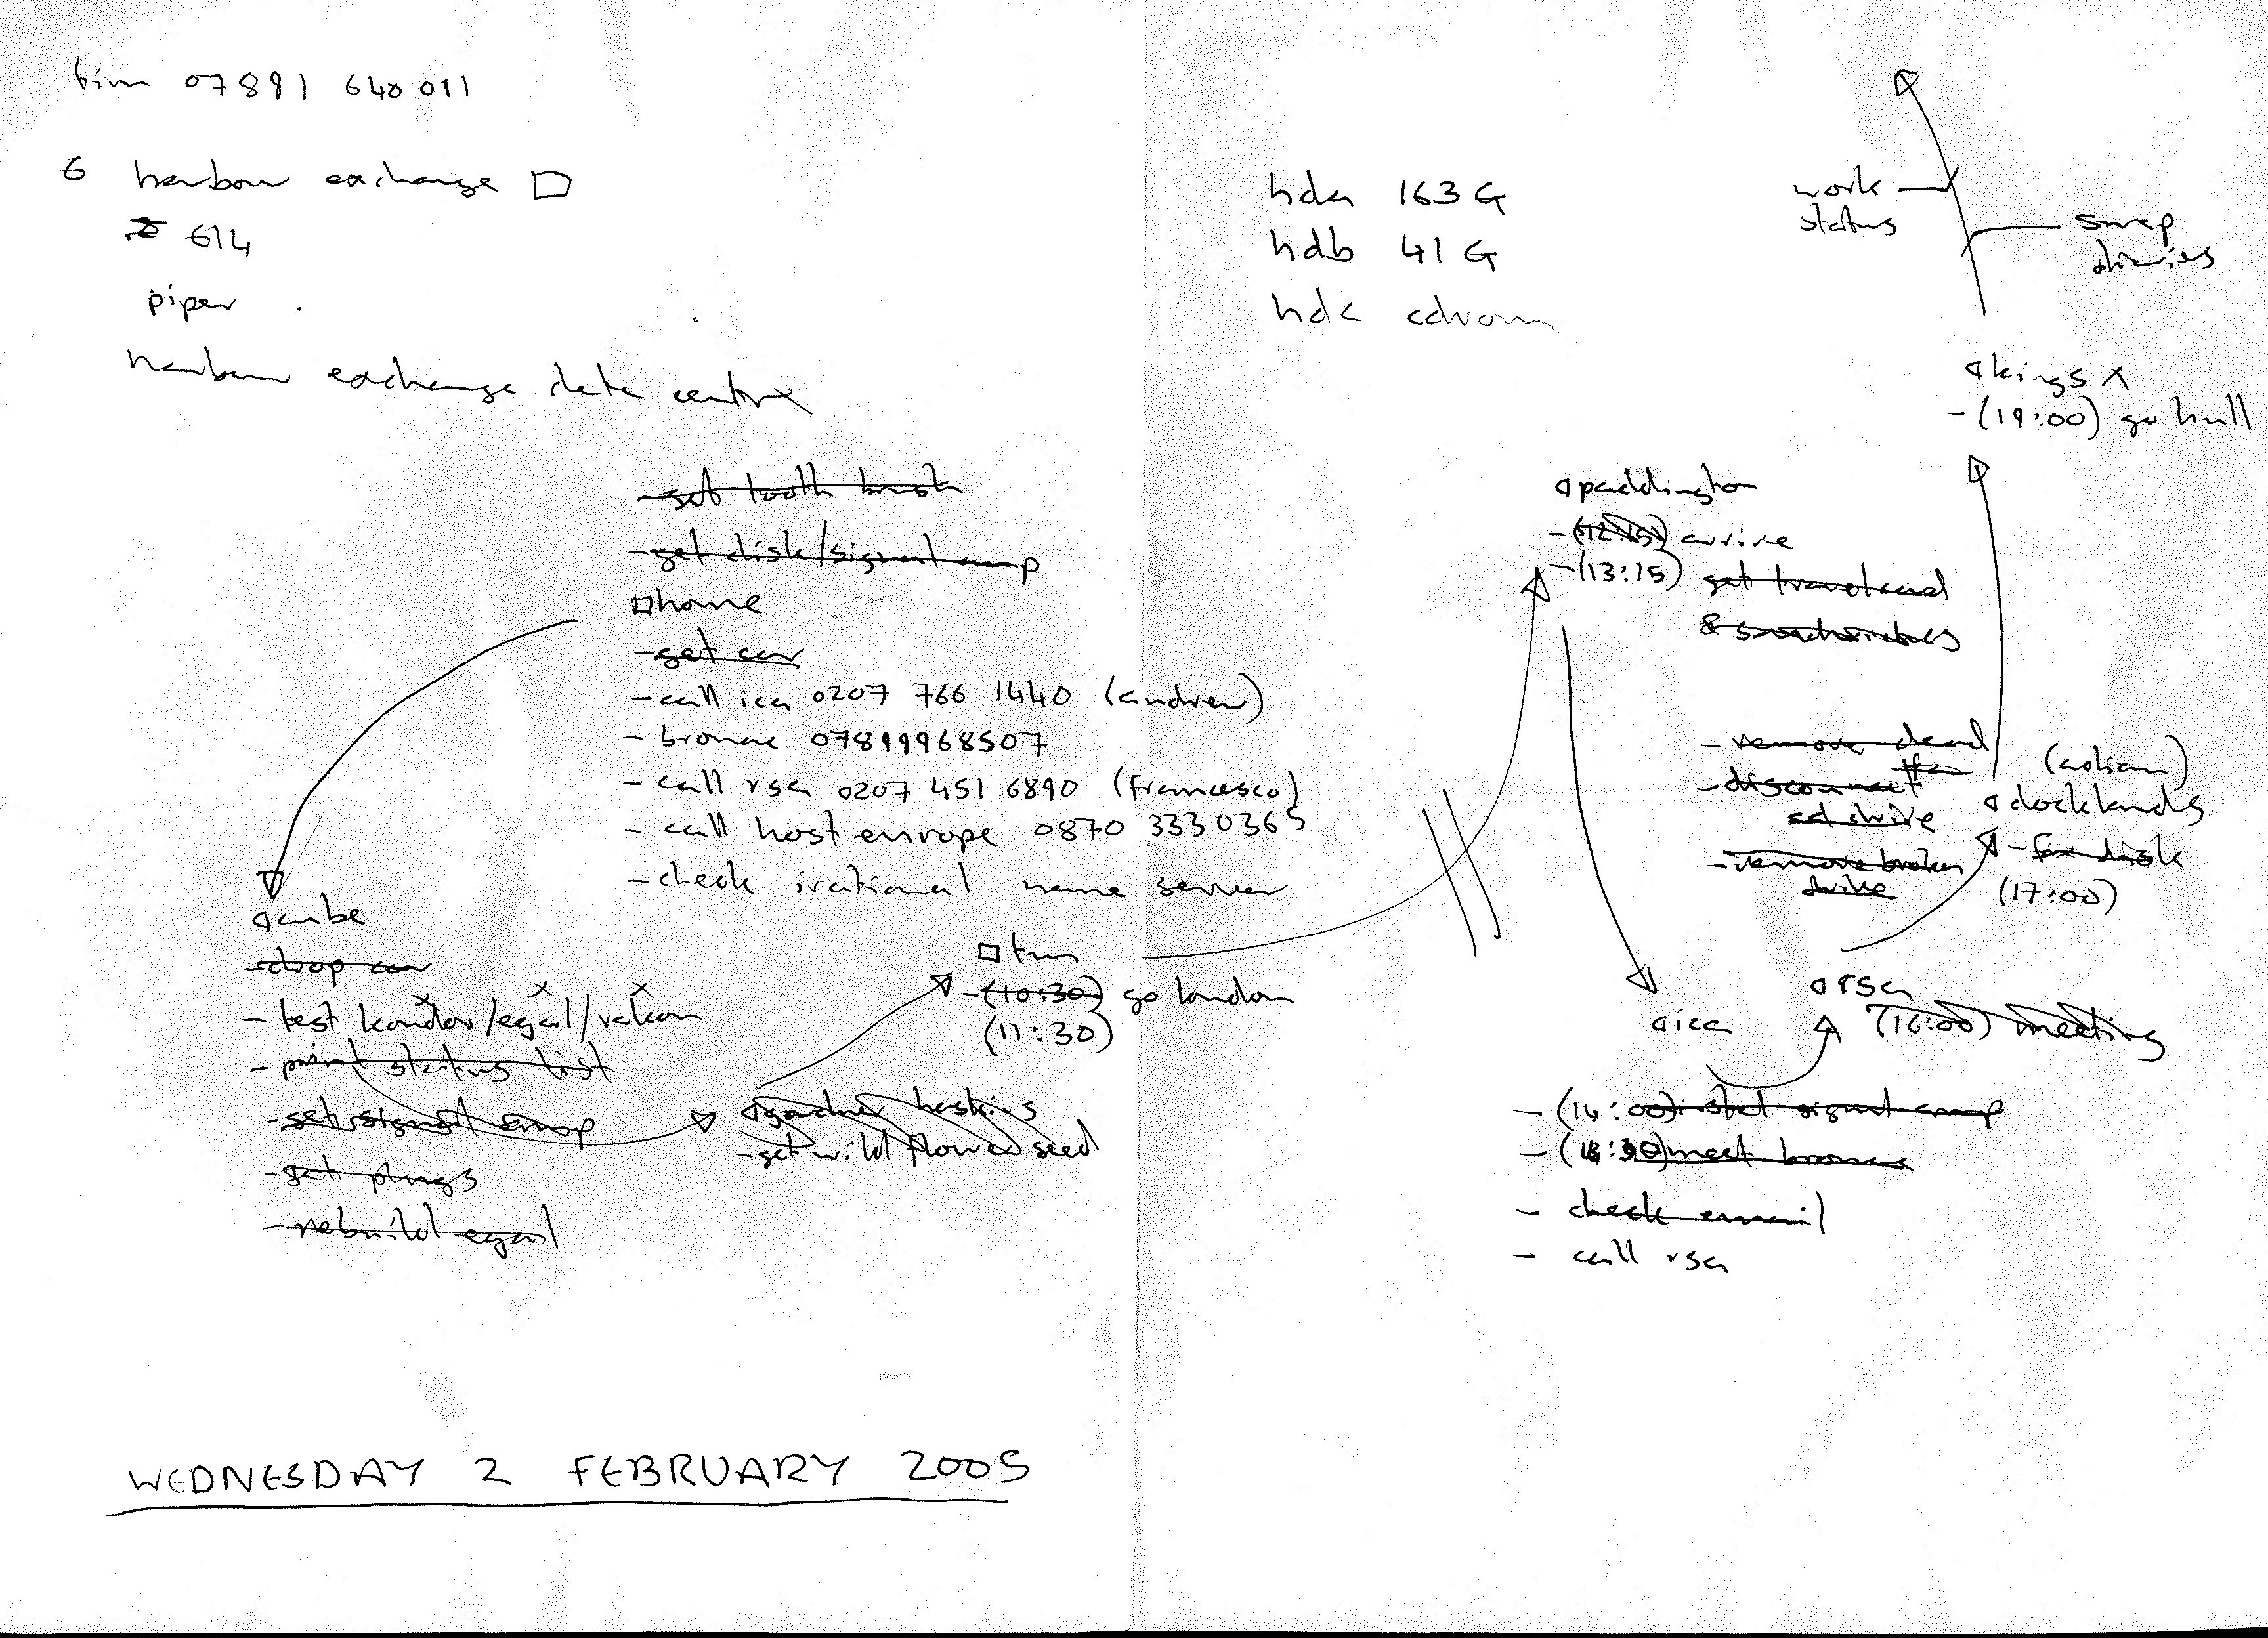 tim 07891 640 011
6 harbour exchange
614
piper
harbour exchange data centre
hda 163 G
hdb 41 G
hdc cdrom
work
status
swap
diaries
kings X
- (19:00) go hull
- get tooth brush
- get disk/signal amp
home
- get car
- call ica 0207 766 1440 (andrew)
- bronac 07899968507
- call rsa 0207 451 6890 (francesco)
- call host europe 0870 3330365
- check irational name server
cube
- drop car
- test kondor/egail/
- print status list
- get signal amp
- get plugs
- rebuild egail
gardner haskins
- get wild flower seed
tm
- (10:30) go london
(11:30)
paddington
- (12:15) arrive
- (13:15) get travelcard
& sandwiches
ica
- (14:00) install signal amp
- meet bronac
- check email
- call rsa
rsa
(16:00) meeting
- remove dead
- disconnect
cd drive
- remove broken
drive
docklands
- fix disk
(17:00)
WEDNESDAY 2 FEBRUARY 2005